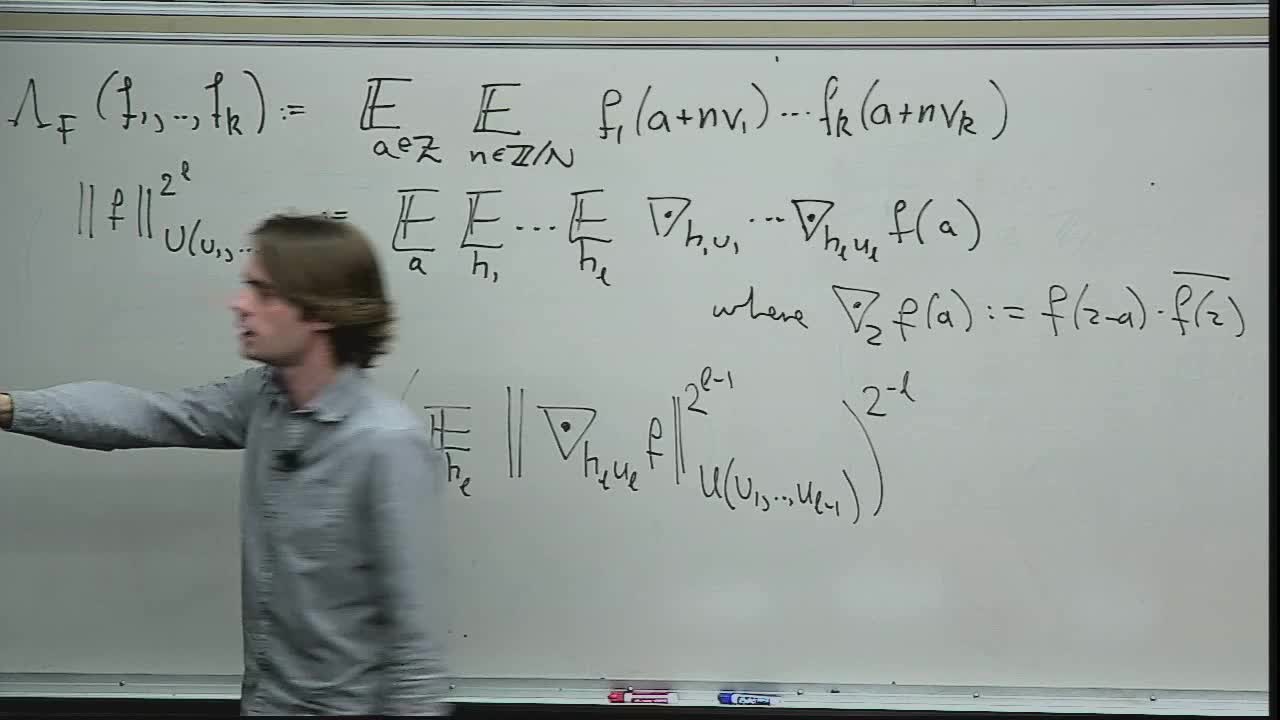 Λ_F (f₁,..,f_k) := 𝔼_{a∈ℤ} 𝔼_{n∈ℤ/N} f₁(a+nv₁)···f_k(a+nv_k)
‖f‖^{2^ℓ}_{U(u₁,..} := 𝔼_a 𝔼_{h₁} ··· 𝔼_{h_ℓ} ∇_{h₁u₁} ··· ∇_{h_ℓu_ℓ} f(a)
where ∇_z f(a) := f(z-a)·\overline{f(z)}
( 𝔼_{h_ℓ} ‖∇_{h_ℓu_ℓ} f‖^{2^{ℓ-1}}_{U(u₁,..,u_{ℓ-1})} )^{2^{-ℓ}}